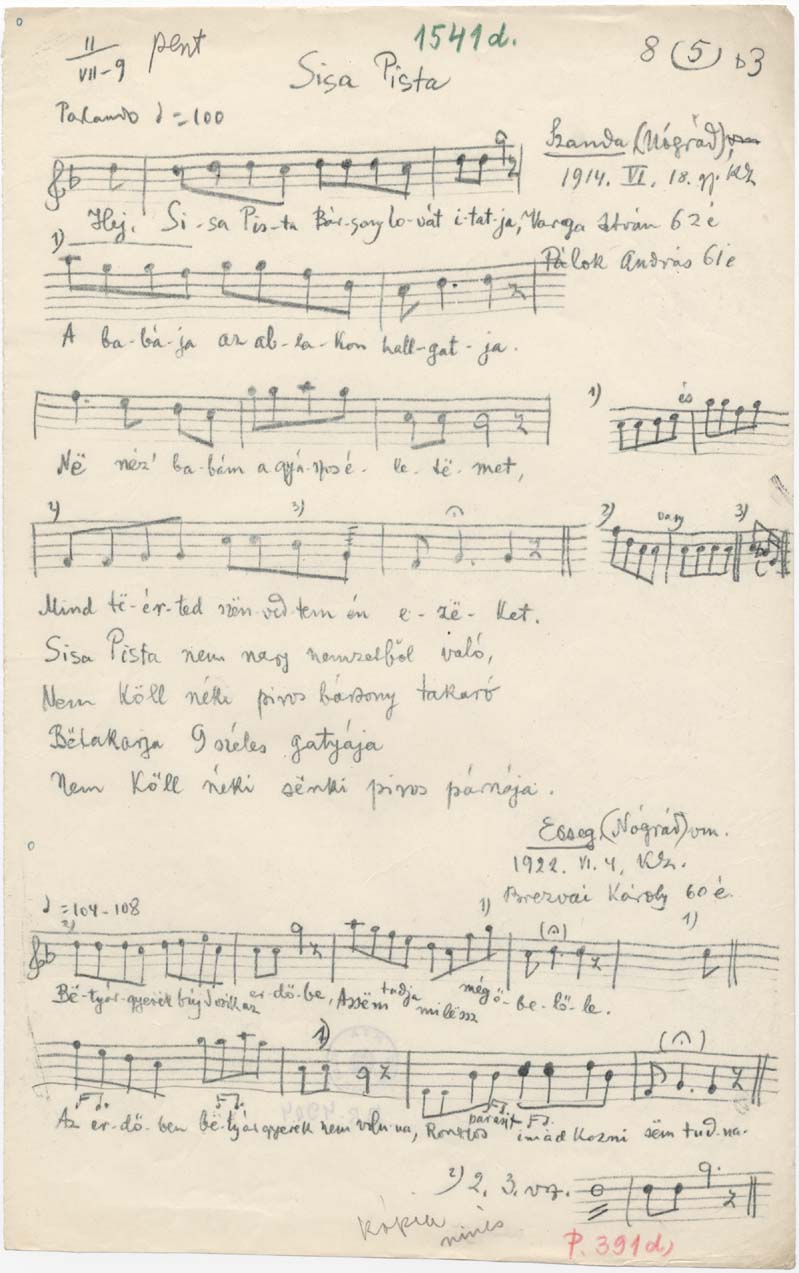 II
VII-9 pent
1541d.
8 (5) b3
Sisa Pista
Parlando ♩=100
Szanda (Nógrád)
1914. VI. 18. gy. KZ
Varga István 62 é
Pálok András 61 é
Hej, Si-sa Pis-ta Bár-sony lo-vát i-tat-ja,
1)
A ba-bá-ja az ab-la-kon hall-gat-ja.
1) és
Në néz' ba-bám a gyá-szos é-le-të-met,
2) 3)
2) vagy 3)
Mind të-ér-ted szën-ved-tem én e-zë-ket.
Sisa Pista nem nagy nemzetből való,
Nem köll néki piros bársony takaró
Bétakarja 9 széles gatyája
Nem köll néki sënki piros párnája.
Ecseg (Nógrád) vm.
1922. VI. 4. KZ.
Brezvai Károly 60 é.
♩=104-108
2) 1) 1)
Bë-tyár-gyerek búj dosik az er-dő-be, Assëm tudja milëssz még ő-be-lő-le.
1)
Az er-dő-ben bë-tyárgyerek nem vóln-na, Rongyos parasjt imádkozni sëm tud-na.
2) 2. 3. vsz.
kópia
nincs
P. 391d)